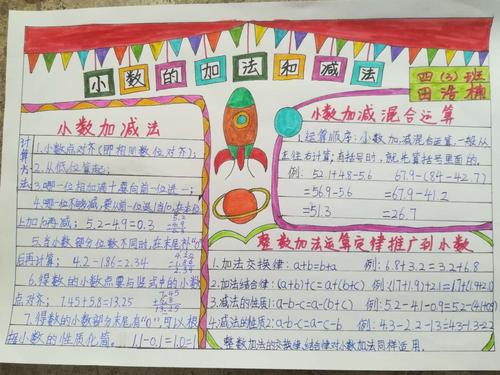 小数的加法和减法
四(3)班
田浩楠
小数加减法
计算方法
1.小数点对齐(即相同数位对齐);
2.从低位算起;
3.哪一位相加满十要向前一位进一;
4.哪一位不够减,要从前一位退1当10,在本位
上加10再减; 5.2-4.9=0.3
5.当小数部分位数不同时,在末尾补"0"
后再计算; 4.2-1.86=2.34
6.得数的小数点要与竖式中的小数
点对齐; 7.45+5.8=13.25
7.得数的小数部分末尾有"0",可以根
据小数的性质化简。 1.1-0.1=1.0=1
小数加减混合运算
1.运算顺序:小数加减混合运算,一般从
左往右计算;有括号时,就先算括号里面的。
例: 52.1+4.8-5.6 67.9-(84-42.7)
=56.9-5.6 =67.9-41.2
=51.3 =26.7
整数加法运算定律推广到小数
1.加法交换律:a+b=b+a 例:6.8+3.2=3.2+6.8
2.加法结合律:(a+b)+c=a+(b+c)
3.减法的性质1:a-b-c=a-(b+c) 例:5.2-4.1-0.9=5.2-(4.1+0.9)
4.减法的性质2:a-b-c=a-c-b 例:4.3-2.2-1.3=4.3-1.3-2.2
整数加法的交换律、结合律对小数加法同样适用。